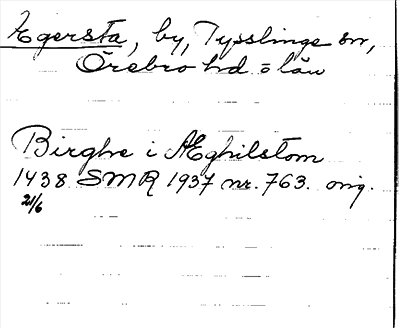 Egersta, by, Tysslinge sn,
Örebro hd. o län
Birghe i Æghilstom
1438 SMR 1937 nr. 763. orig.
21/6